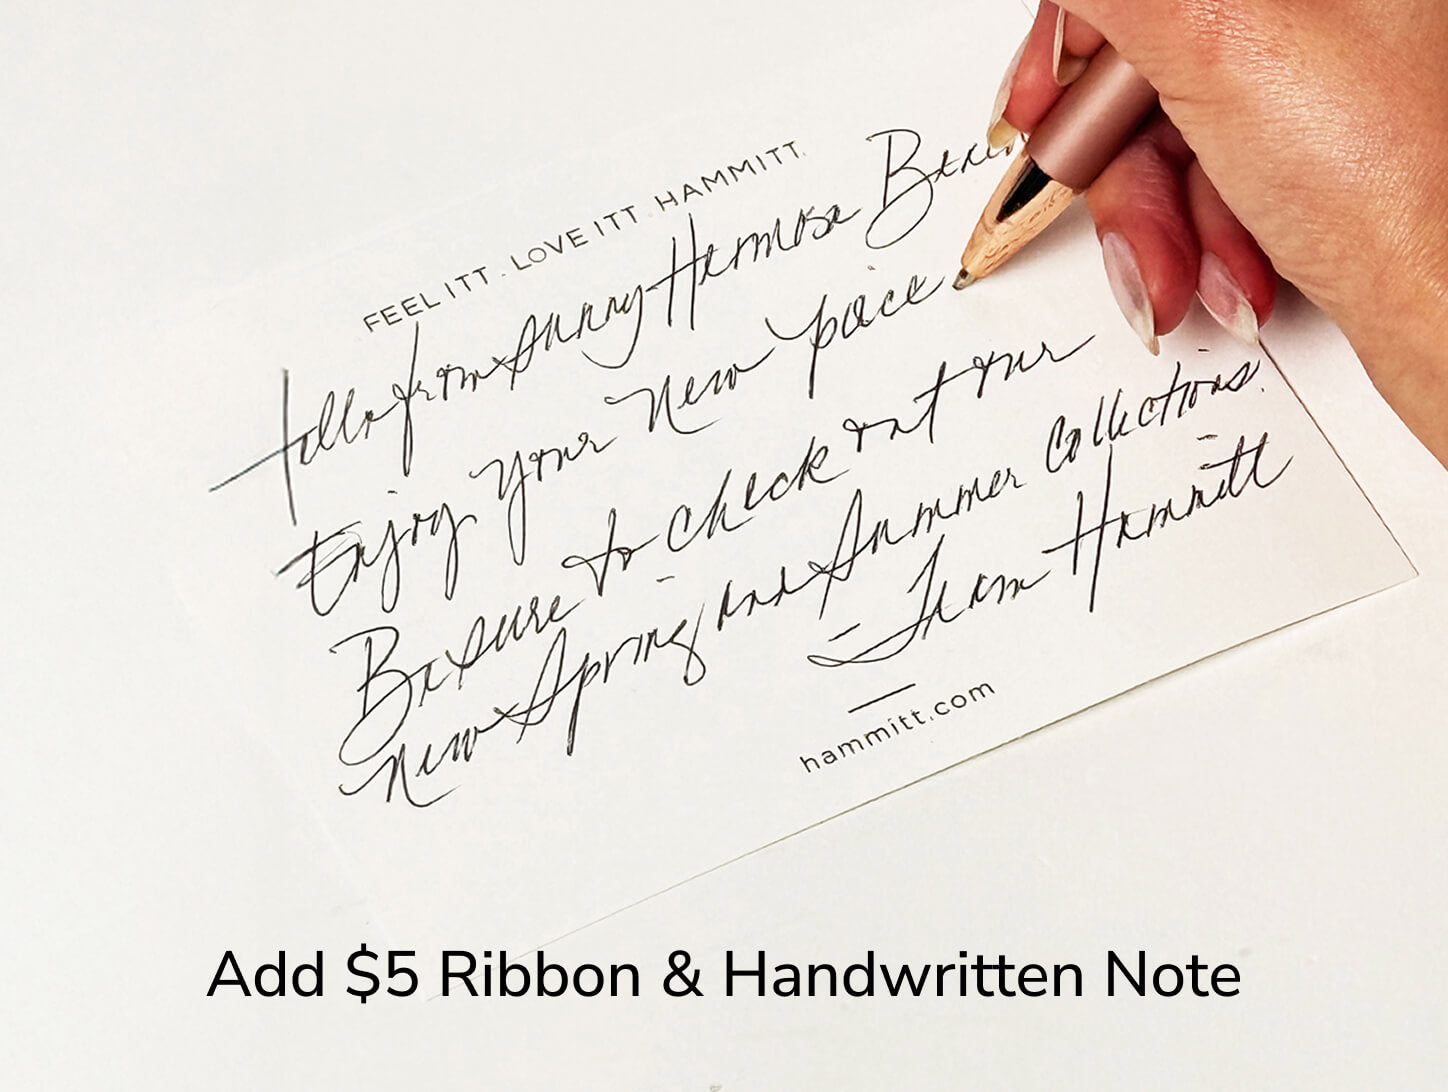 FEEL ITT . LOVE ITT . HAMMITT.
Hello from sunny Hermosa
Enjoy your new
Be sure to check out our
new Spring and Summer Collections.
– Team Hammitt
hammitt.com
Add $5 Ribbon & Handwritten Note